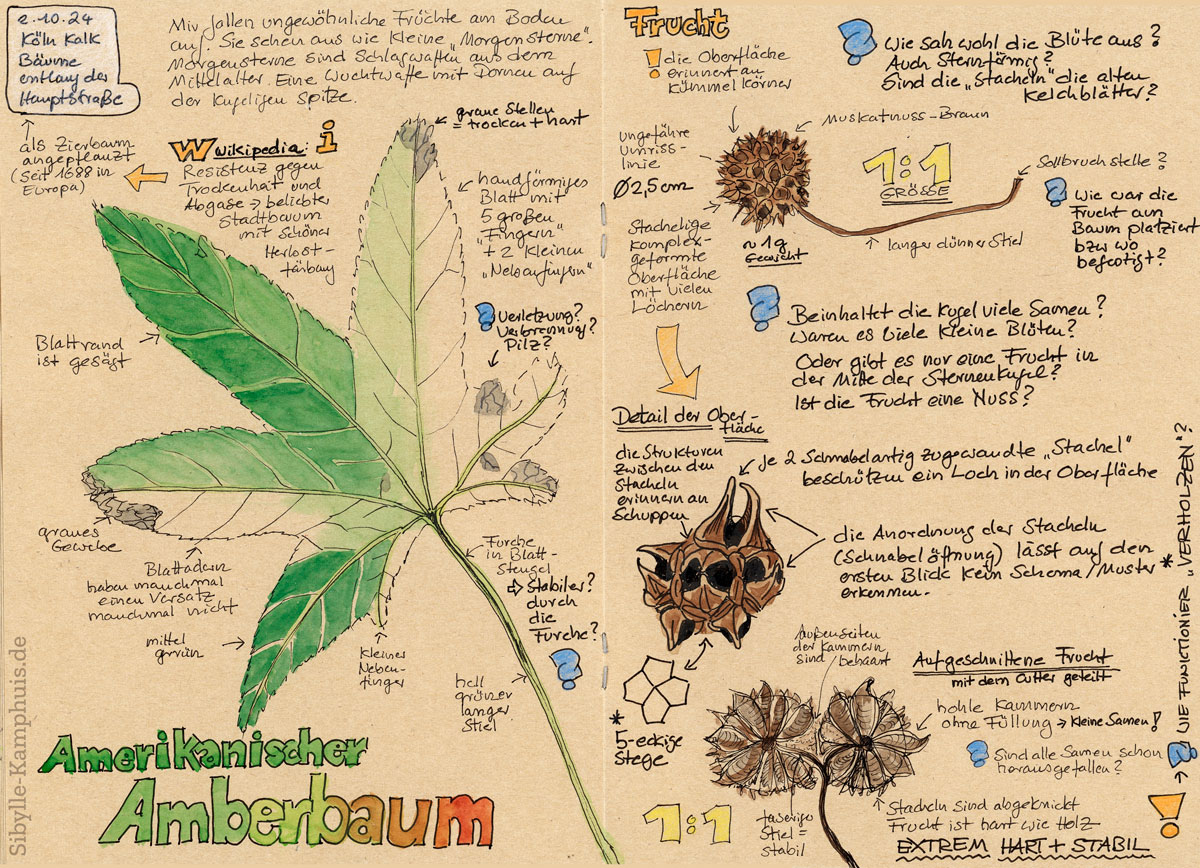 2.10.24
Köln Kalk
Bäume
entlang der
Hauptstraße
Mir fallen ungewöhnliche Früchte am Boden
auf. Sie sehen aus wie kleine „Morgensterne“.
Morgensterne sind Schlagwaffen aus dem
Mittelalter. Eine Wuchtwaffe mit Dornen auf
der kugeligen Spitze.
als Zierbaum
angepflanzt
(Seit 1688 in
Europa)
W Wikipedia: i
Resistenz gegen
Trockenheit und
Abgase → beliebter
Stadtbaum
mit schöner
Herbst-
färbung
graue Stellen
= trocken + hart
handförmiges
Blatt mit
5 großen
„Fingern“
+ 2 kleinen
„Nebenfingern“
? Verletzung?
Verbrennung?
Pilz?
Blattrand
ist gesägt
graues
Gewebe
Blattadern
haben manchmal
einen Versatz
manchmal nicht
mittel
grün
kleiner
Neben-
finger
Furche
in Blatt-
stengel
⇨ Stabiler?
durch
die
Furche?
?
hell
grüner
langer
Stiel
Amerikanischer
Amberbaum
Sibylle-Kamphuis.de
Frucht
! die Oberfläche
erinnert an
Kümmel Körner
? Wie sah wohl die Blüte aus?
Auch Sternförmig?
Sind die „Stacheln“ die alten
Kelchblätter?
ungefähre
Umriss-
linie
Ø 2,5cm
Muskatnuss-Braun
1:1
GRÖSSE
Sollbruchstelle?
? Wie war die
Frucht am
Baum platziert
bzw wo
befestigt?
Stachelige
komplex-
geformte
Oberfläche
mit vielen
Löchern
~ 1g
Gewicht
langer dünner Stiel
? Beinhaltet die Kugel viele Samen?
Waren es viele kleine Blüten?
Oder gibt es nur eine Frucht in
der Mitte der Sternenkugel?
Ist die Frucht eine Nuss?
Detail der Ober-
fläche
die Strukturen
zwischen den
Stacheln
erinnern an
Schuppen
je 2 Schnabelartig zugewandte „Stachel“
beschützen ein Loch in der Oberfläche
die Anordnung der Stacheln
(Schnabelöffnung) lässt auf den
ersten Blick kein Schema/Muster *
erkennen.
*
5-eckige
Stege
Außenseiten
der Kammern
sind behaart
Aufgeschnittene Frucht
mit dem Cutter geteilt
hohle Kammern
ohne Füllung → kleine Samen!
? Sind alle Samen schon
herausgefallen?
1:1
faseriger
Stiel =
stabil
Stacheln sind abgeknickt
Frucht ist hart wie Holz
EXTREM HART + STABIL
!
→ ? WIE FUNKTIONIER „VERHOLZEN“?